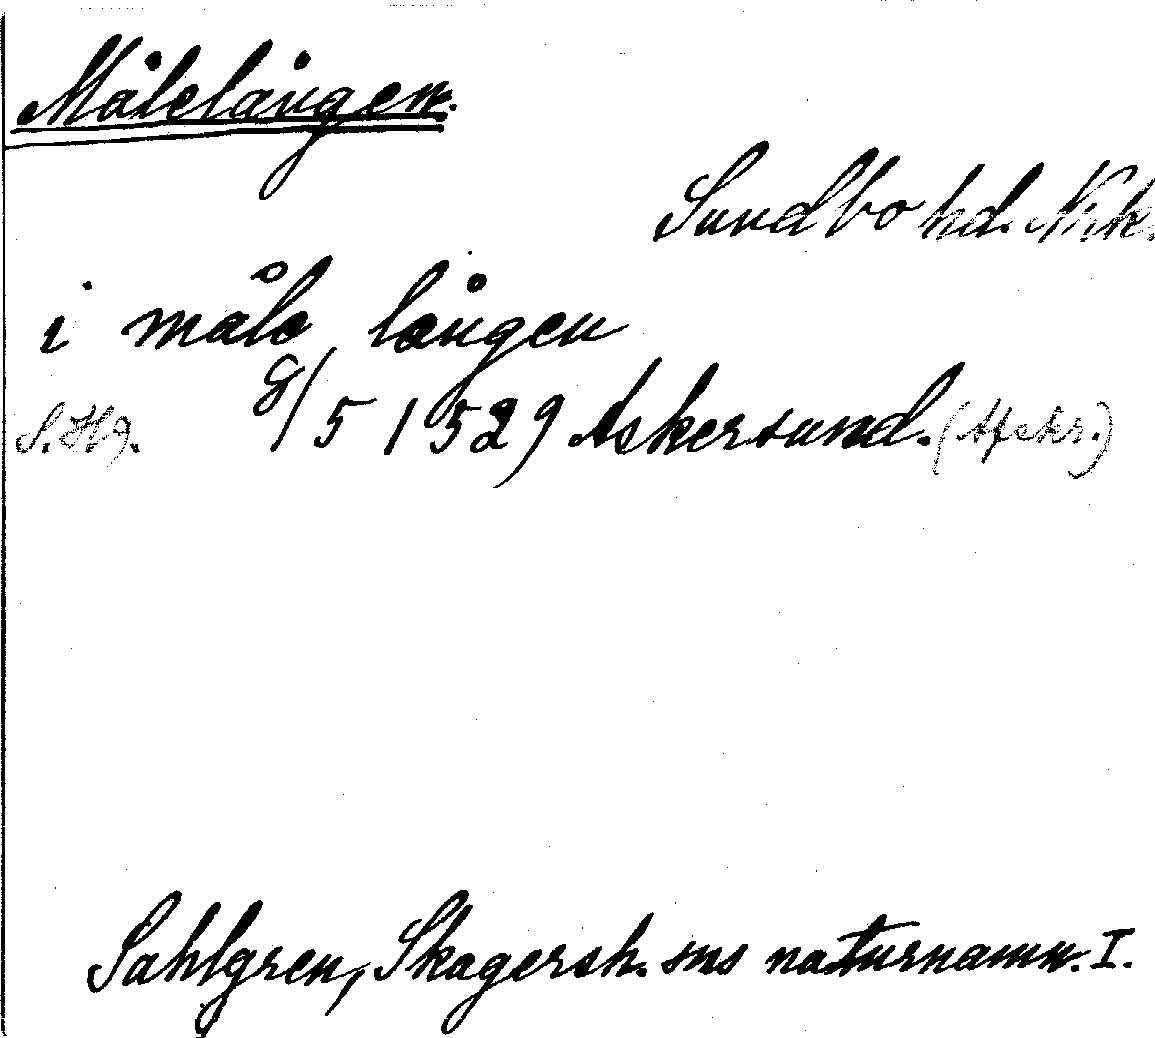 Målelången.
Sundbo hd. Nrk.
i måle lången
8/5 1529 Askersund. (Afskr.)
Sahlgren, Skagersh. sns naturnamn. I.